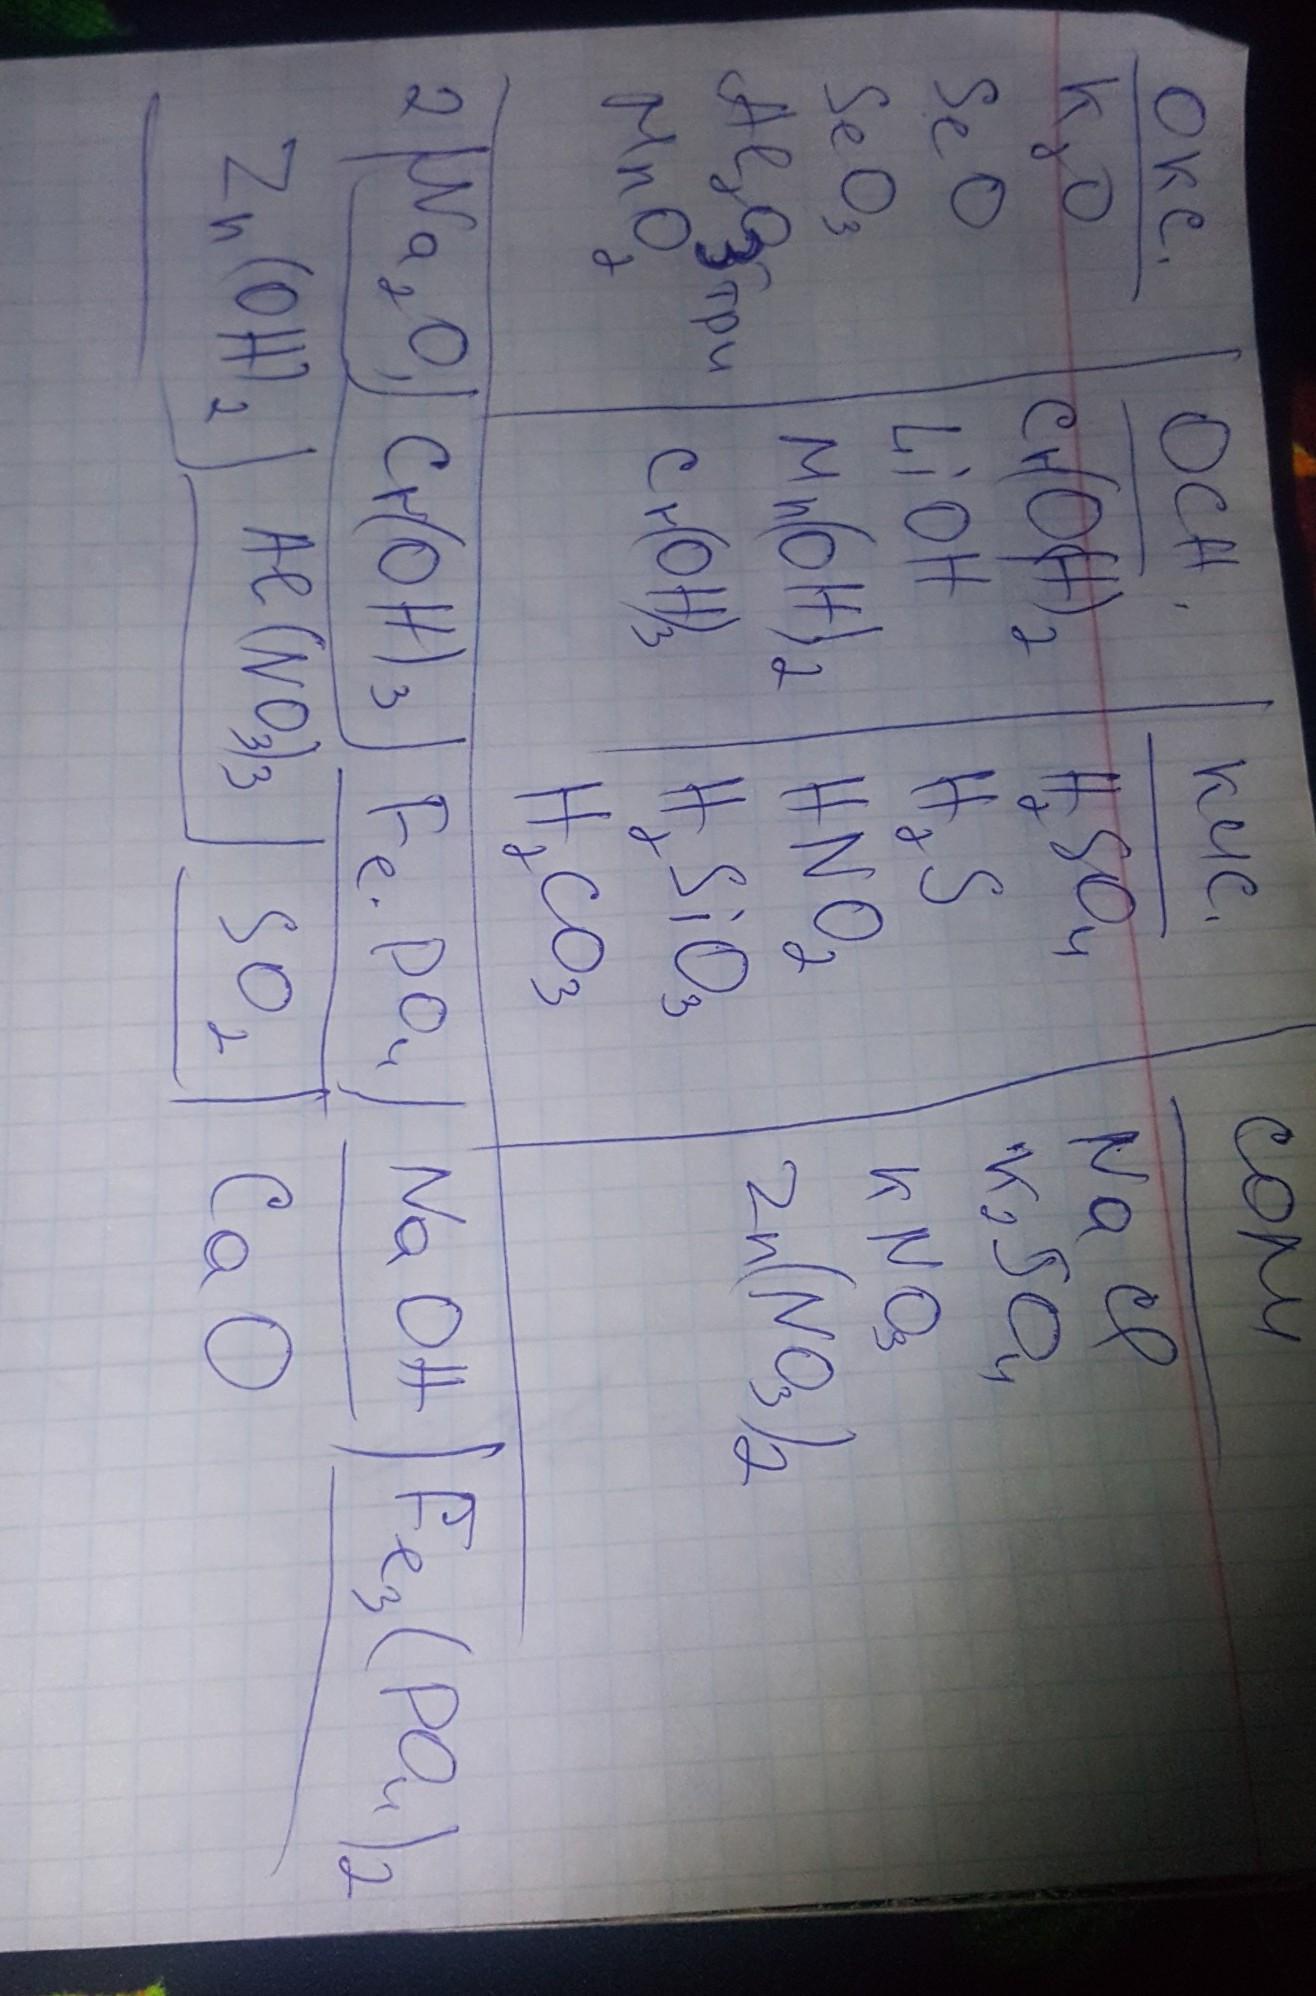 Окс. Осн. Кис. Соли
K₂O Cr(OH)₂ H₂SO₄ NaCl
SeO LiOH H₂S K₂SO₄
SeO₃ Mn(OH)₂ HNO₂ KNO₃
Al₂O₃ три Cr(OH)₃ H₂SiO₃ Zn(NO₃)₂
MnO₂ H₂CO₃
2 Na₂O, Cr(OH)₃ Fe.PO₄ NaOH Fe₃(PO₄)₂
Zn(OH)₂ Al(NO₃)₃ SO₂ CaO